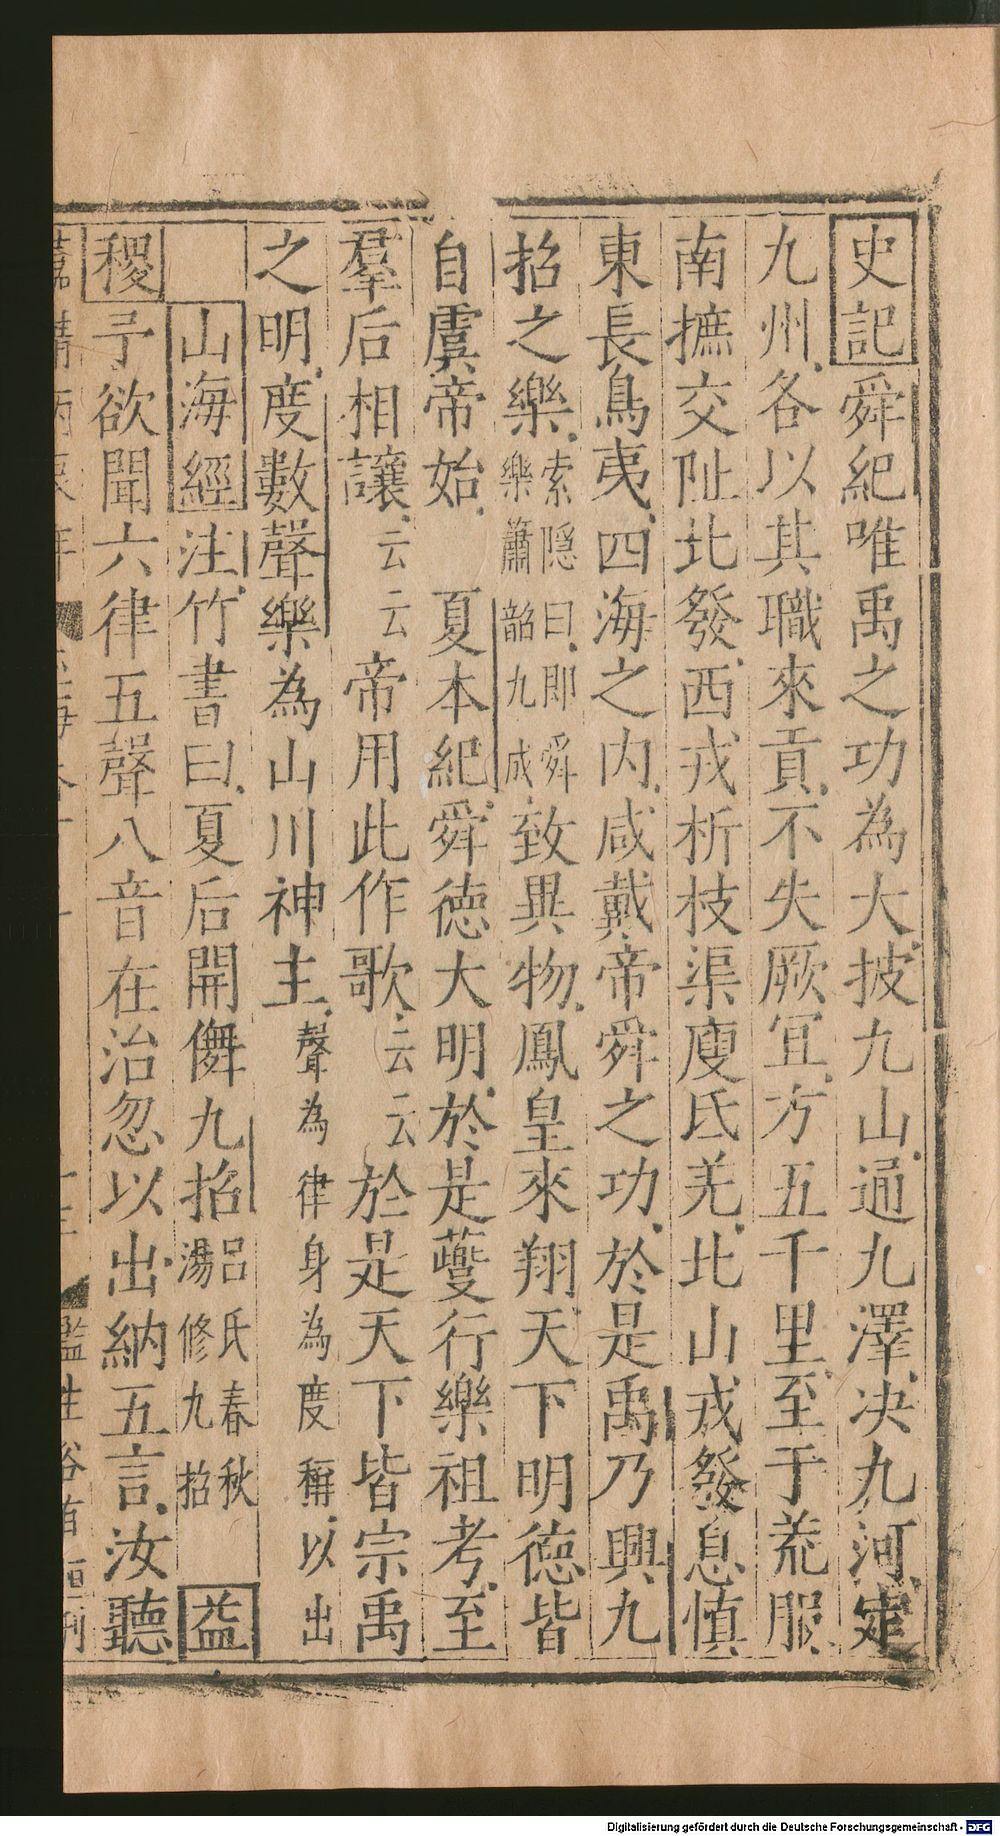 史記舜紀唯禹之功為大披九山通九澤决九河定
九州各以其職來貢不失厥宜方五千里至于荒服
南撫交阯北發西戎析枝渠廋氐羌北山戎發息慎
東長鳥夷四海之内咸戴帝舜之功於是禹乃興九
招之樂索隱曰即舜樂簫韶九成致異物鳳皇來翔天下明德皆
自虞帝始 夏本紀舜德大明於是夔行樂祖考至
羣后相讓云云帝用此作歌云云於是天下皆宗禹
之明度數聲樂為山川神主聲為律身為度稱以出
山海經注竹書曰夏后開儛九招呂氏春秋湯修九招 益
稷予欲聞六律五聲八音在治忽以出納五言汝聽
Digitalisierung gefördert durch die Deutsche Forschungsgemeinschaft - DFG